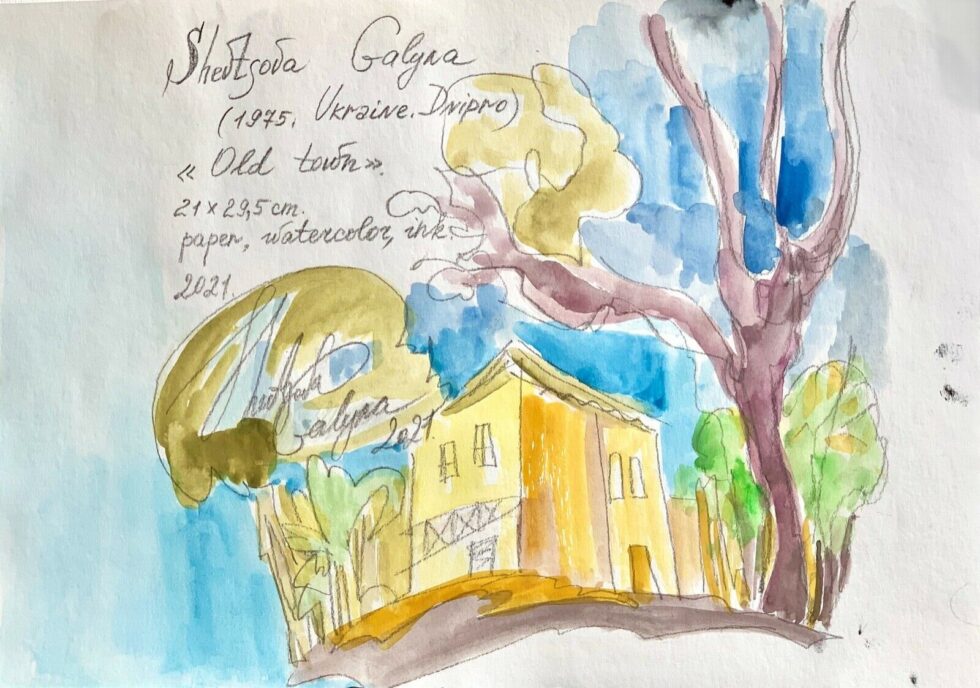 Shevtsova Galyna
(1975, Ukraine. Dnipro)
« Old town».
21 x 29,5 cm.
paper, watercolor, ink.
2021.
Shevtsova
Galyna
2021